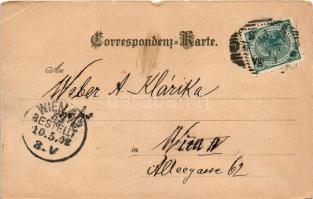 Correspondenz-Karte.
An
Weber A Klárika
in Wien IV
Alleegasse 62
WIEN
BESTELLT
10.5.03
3.V